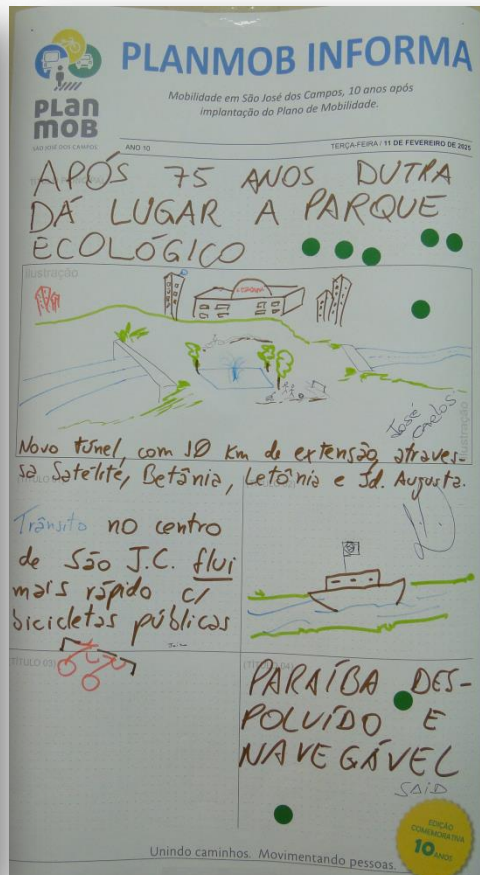 PLAN
MOB
SÃO JOSÉ DOS CAMPOS
PLANMOB INFORMA
Mobilidade em São José dos Campos, 10 anos após
implantação do Plano de Mobilidade.
ANO 10
TERÇA-FEIRA / 11 DE FEVEREIRO DE 2025
APÓS 75 ANOS DUTRA
DÁ LUGAR A PARQUE
ECOLÓGICO
Ilustração
José
Carlos
Ilustração
Novo túnel, com 10 Km de extensão, atraves-
sa Satélite, Betânia, Letônia e Jd. Augusta.
Trânsito no centro
de São J.C. flui
mais rápido c/
bicicletas públicas
(TÍTULO 03)
(TÍTULO 04)
PARAÍBA DES-
POLUÍDO E
NAVEGÁVEL
SAID
EDIÇÃO
COMEMORATIVA
10 ANOS
Unindo caminhos. Movimentando pessoas.